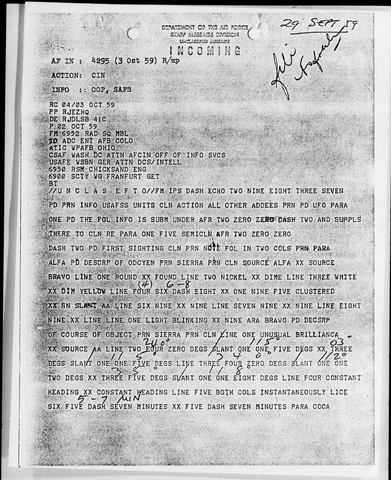 29 SEPT 59
DEPARTMENT OF THE AIR FORCE
STAFF MESSAGE DIVISION
UNCLASSIFIED MESSAGE
INCOMING
AF IN : 4295 (3 Oct 59) R/mp
ACTION: CIN
INFO : OOP, SAFS
RC 04/03 OCT 59
PP RJEZHQ
DE RJDLSB 41C
P 02 OCT 59
FM 6952 RAD SQ MBL
TO ADC ENT AFB COLO
ATIC WPAFB OHIO
CSAF WASH DC ATTN AFCIN OFF OF INFO SVCS
USAFE WSBN GER ATTN DCS/INTELL
6950 RSM CHICKSAND ENG
6900 SCTY WG FRANFURT GET
BT
//U N C L A S E F T O//FM IPS DASH ECHO TWO NINE EIGHT THREE SEVEN
PD PRN INFO USAFSS UNITS CLN ACTION ALL OTHER ADDEES PRN PD UFO PARA
ONE PD THE FOL INFO IS SUBM UNDER AFR TWO ZERO ZERO DASH TWO AND SUPPLS
THERE TO CLN RE PARA ONE FIVE SEMICLN AFR TWO ZERO ZERO
DASH TWO PD FIRST SIGHTING CLN PRN NOTE FOL IN TWO COLS PRN PARA
ALFA PD DESCRP OF ODCYEN PRN SIERRA PRN CLN SOURCE ALFA XX SOURCE
BRAVO LINE ONE ROUND XX FOUND LINE TWO NICKEL XX DIME LINE THREE WHITE
(4) 6-8
XX DIM YELLOW LINE FOUR SIX DASH EIGHT XX ONE NINE FIVE CLUSTERED
XX NN SLANT AA LINE SIX NINE XX NINE LINE SEVEN NINE XX NINE LINE EIGHT
NINE XX LINE LINE ONE LIGHT BLINKING XX NINE ARA BRAVO PD DECSRP
OF COURSE OF OBJECT PRN SIERRA PRN CLN LINE ONE UNUSUAL BRILLIANCA
240° 115° 03°
XX SOURCE AA LINE TWO FOUR ZERO DEGS SLANT ONE ONE FIVE DEGS XX THREE
DEGS SLANT ONE ONE FIVE DEGS LINE THREE FOUR ZERO DEGS SLANT ONE ONE
TWO DEGS XX THREE FIVE DEGS SLANT ONE ONE EIGHT DEGS LINE FOUR CONSTANT
HEADING XX CONSTANT HEADING LINE FIVE BOTH COLS INSTANTANEOUSLY LICE
5-7 MIN
SIX FIVE DASH SEVEN MINUTES XX FIVE DASH SEVEN MINUTES PARA COCA